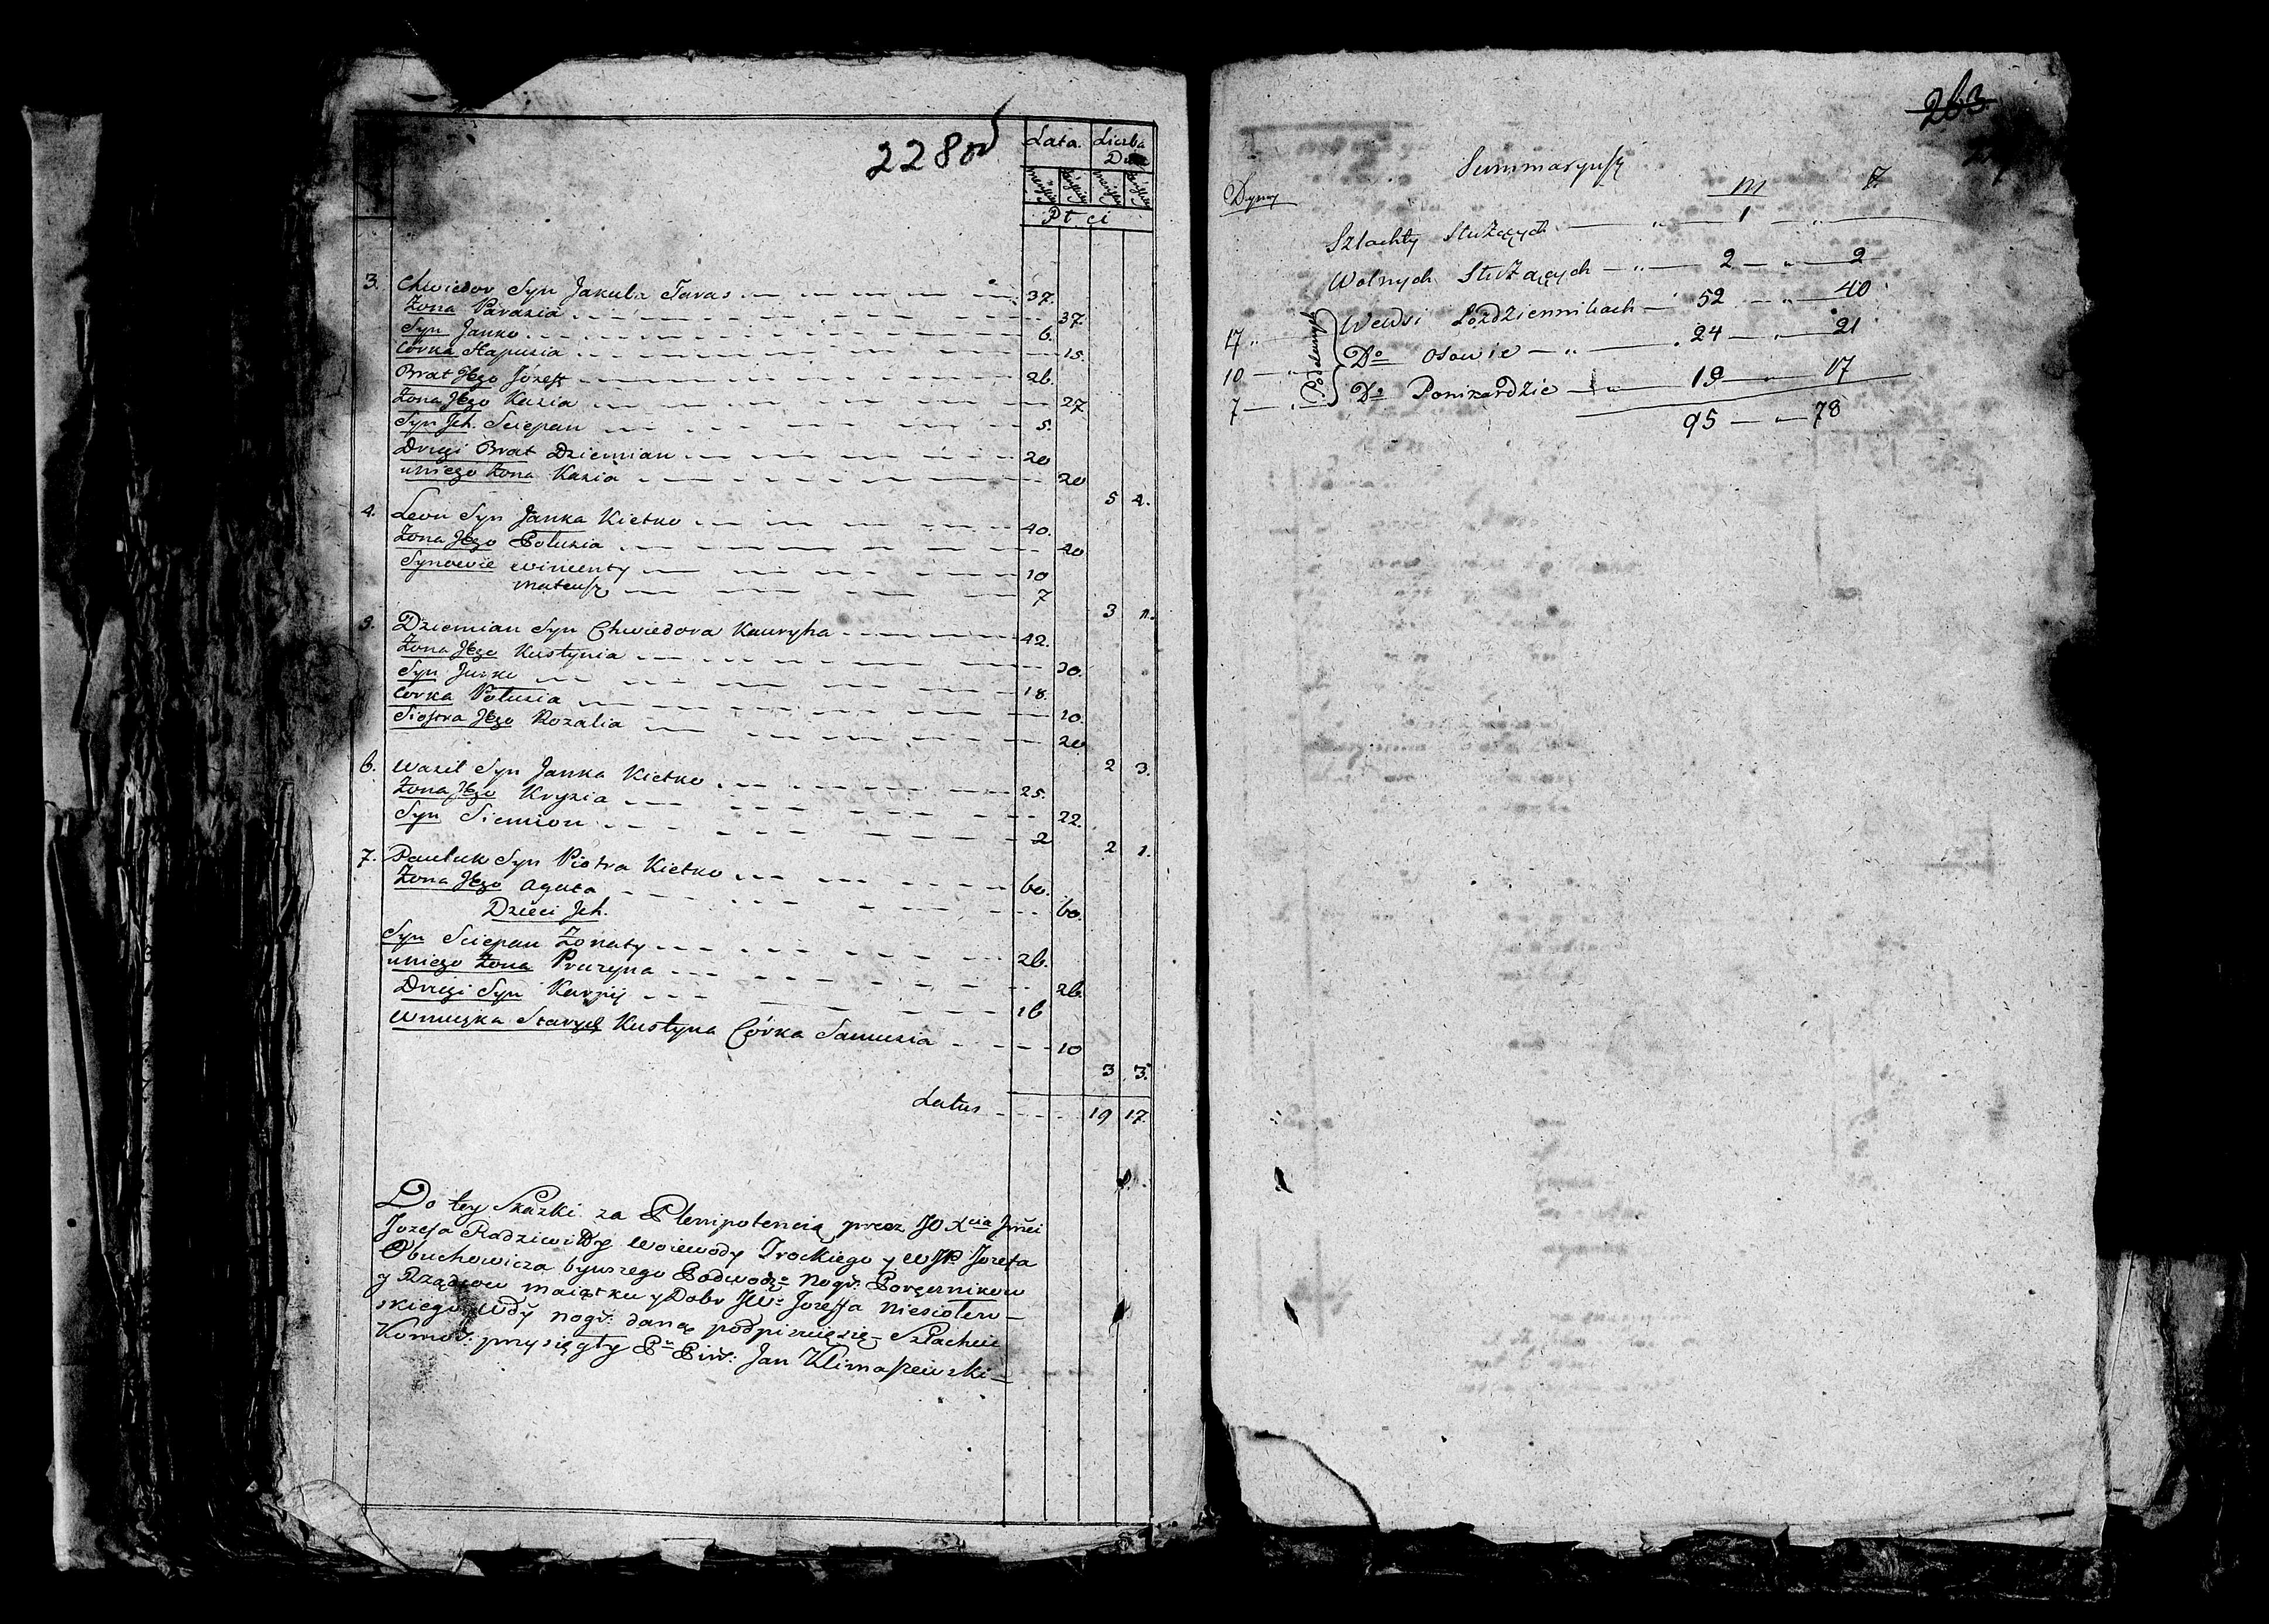 228 od
Lata. Liczba Dusz
Płci
3. Chwiedor Syn Jakuba Taras 37.
Żona Parasia 37.
Syn Janko 6.
Córka Hapusia 15.
Brat Jego Józef 26.
Żona Jego Kasia 27
Syn Jch. Sciepan 5.
Drugi Brat Dziemian 20
uniego Żona Kasia 20
5 4.
4. Leon Syn Janka Kietko 40.
Żona Jego Połusia 40
Synowie Wincenty 10
Mateusz 7
3 1.
5. Dziemian Syn Chwiedora Kauryha 42.
Żona Jego Kustynia 30.
Syn Jurko 18.
Corka Połusia 10.
Siostra Jego Rozalia 20
2 3.
6. Wasil Syn Janka Kietko 25.
Żona Jego Krysia 22.
Syn Siemion 2
2 1.
7. Pauluk Syn Piotra Kietko 60.
Żona Jego Agata 60.
Dzieci Jch.
Syn Sciepan Żonaty 26.
uniego Żona Pruzyna 26.
Drugi Syn Karpij 16
Wnuczka Starych Kustyna Córka Samusia 10
3 3.
Latus 19 17.
Do tey Skazki za Plenipotencią przez JO Xcia Jmci
Jozefa Radziwiłły Woiewody Trockiego y WJP. Jozefa
Obuchowicza bywszego Podwodzo Nogr: Porzernikow
y Rządzcow Maiątku y Dobr JWo Jozeffa Niesiołow-
skiego Wdy Nogr: daną podpisuię się Szlachcic
Komor: przysięgły Ptu Piń: Jan Klimaszewski
263
Summaryusz
Dymy M F
Szlachty Służących 1
Wolnych Służących 2 2
17 Wewsi Łozdziennikach 52 40
10 Do Osowie 24 21
7 Do Ponizardzie 19 17
95 78